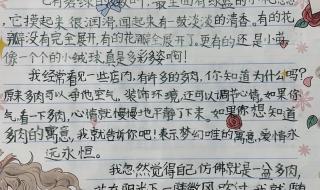 它摸起来很润滑,闻起来有一股淡淡的清香。有的花
瓣没有完全展开,有的花瓣全展开了。更有的还是小花
像一个个的小绒球真是多彩多姿啊!
我经常看见一些店内,有许多的多肉,你知道为什么吗?
原来多肉可以净化空气,装饰环境,还可以调节心情,如果你
气,看一下多肉,心情就慢慢地平静了下来。如果你想知道
多肉的寓意,我就告诉你吧!表示梦幻,唯的寓意,爱情永
远永恒。
我忽然觉得自己仿佛就是一盆多肉,